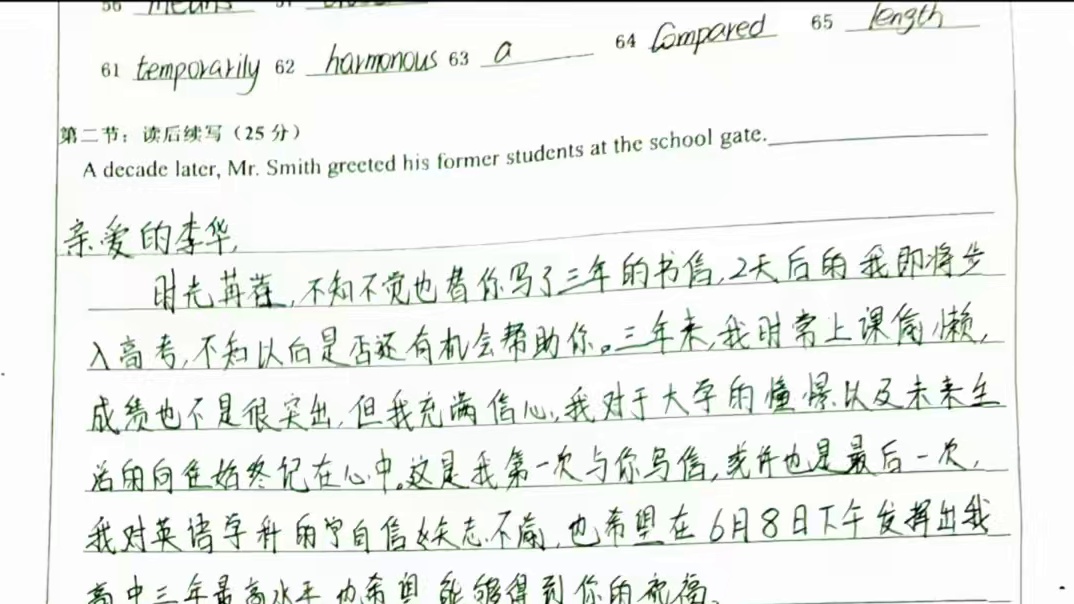 56 means 57
61 temporarily 62 harmonous 63 a 64 Compared 65 length
第二节：读后续写（25分）
A decade later, Mr. Smith greeted his former students at the school gate.
亲爱的李华,
时光苒荏,不知不觉也替你写了三年的书信,2天后的我即将步
入高考,不知以后是否还有机会帮助你。三年来,我时常上课偷懒,
成绩也不是很突出,但我充满信心,我对于大学的憧憬以及未来生
活的向往始终记在心中。这是我第一次与你写信,或许也是最后一次,
我对英语学科的自信矢志不渝,也希望在6月8日下午发挥出我
高中三年最高水平也希望能够得到你的祝福。